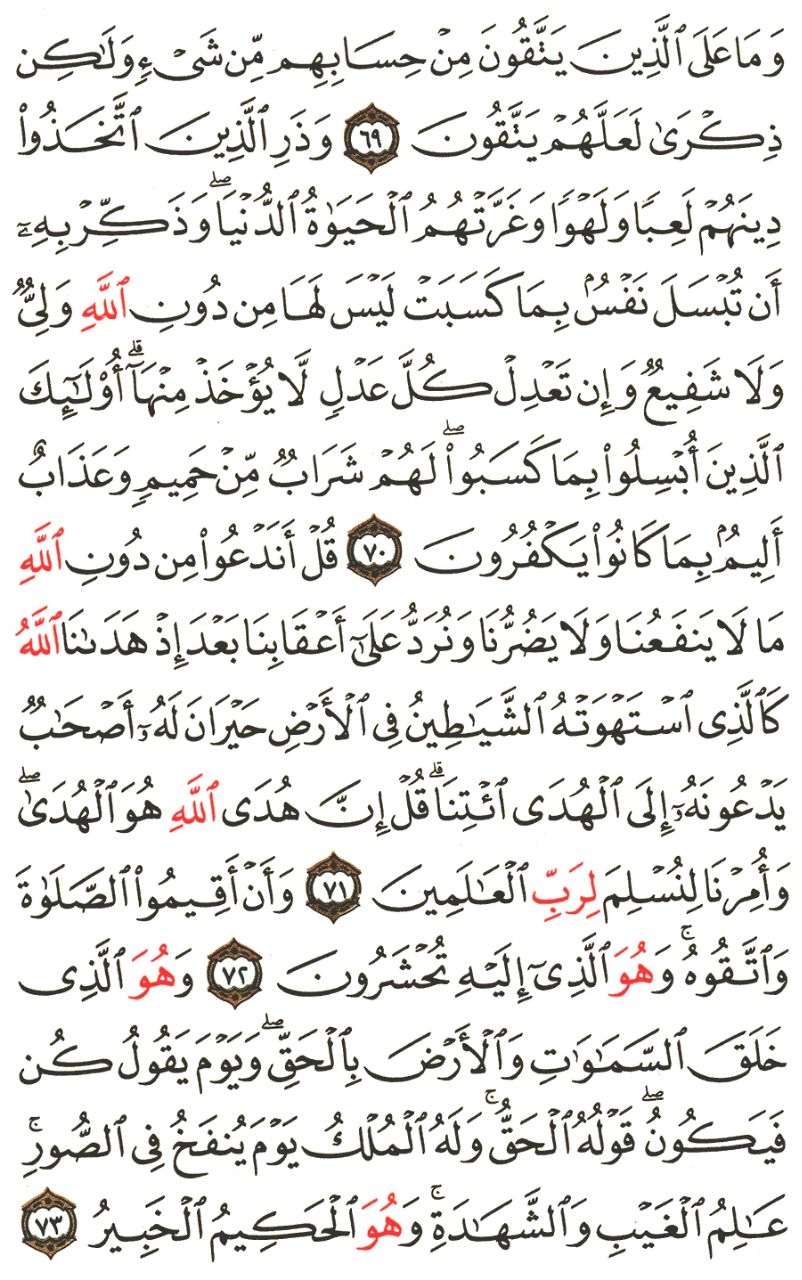 وَمَا عَلَى ٱلَّذِينَ يَتَّقُونَ مِنْ حِسَابِهِم مِّن شَىْءٍ وَلَٰكِن
ذِكْرَىٰ لَعَلَّهُمْ يَتَّقُونَ ٦٩ وَذَرِ ٱلَّذِينَ ٱتَّخَذُوا۟
دِينَهُمْ لَعِبًا وَلَهْوًا وَغَرَّتْهُمُ ٱلْحَيَوٰةُ ٱلدُّنْيَا ۖ وَذَكِّرْ بِهِۦٓ
أَن تُبْسَلَ نَفْسٌۢ بِمَا كَسَبَتْ لَيْسَ لَهَا مِن دُونِ ٱللَّهِ وَلِىٌّ
وَلَا شَفِيعٌ وَإِن تَعْدِلْ كُلَّ عَدْلٍ لَّا يُؤْخَذْ مِنْهَآ ۗ أُو۟لَٰٓئِكَ
ٱلَّذِينَ أُبْسِلُوا۟ بِمَا كَسَبُوا۟ ۖ لَهُمْ شَرَابٌ مِّنْ حَمِيمٍ وَعَذَابٌ
أَلِيمٌۢ بِمَا كَانُوا۟ يَكْفُرُونَ ٧٠ قُلْ أَنَدْعُوا۟ مِن دُونِ ٱللَّهِ
مَا لَا يَنفَعُنَا وَلَا يَضُرُّنَا وَنُرَدُّ عَلَىٰٓ أَعْقَابِنَا بَعْدَ إِذْ هَدَىٰنَا ٱللَّهُ
كَٱلَّذِى ٱسْتَهْوَتْهُ ٱلشَّيَٰطِينُ فِى ٱلْأَرْضِ حَيْرَانَ لَهُۥٓ أَصْحَٰبٌ
يَدْعُونَهُۥٓ إِلَى ٱلْهُدَى ٱئْتِنَا ۗ قُلْ إِنَّ هُدَى ٱللَّهِ هُوَ ٱلْهُدَىٰ ۖ
وَأُمِرْنَا لِنُسْلِمَ لِرَبِّ ٱلْعَٰلَمِينَ ٧١ وَأَنْ أَقِيمُوا۟ ٱلصَّلَوٰةَ
وَٱتَّقُوهُ ۚ وَهُوَ ٱلَّذِىٓ إِلَيْهِ تُحْشَرُونَ ٧٢ وَهُوَ ٱلَّذِى
خَلَقَ ٱلسَّمَٰوَٰتِ وَٱلْأَرْضَ بِٱلْحَقِّ ۖ وَيَوْمَ يَقُولُ كُن
فَيَكُونُ ۖ قَوْلُهُ ٱلْحَقُّ ۚ وَلَهُ ٱلْمُلْكُ يَوْمَ يُنفَخُ فِى ٱلصُّورِ ۚ
عَٰلِمُ ٱلْغَيْبِ وَٱلشَّهَٰدَةِ ۚ وَهُوَ ٱلْحَكِيمُ ٱلْخَبِيرُ ٧٣